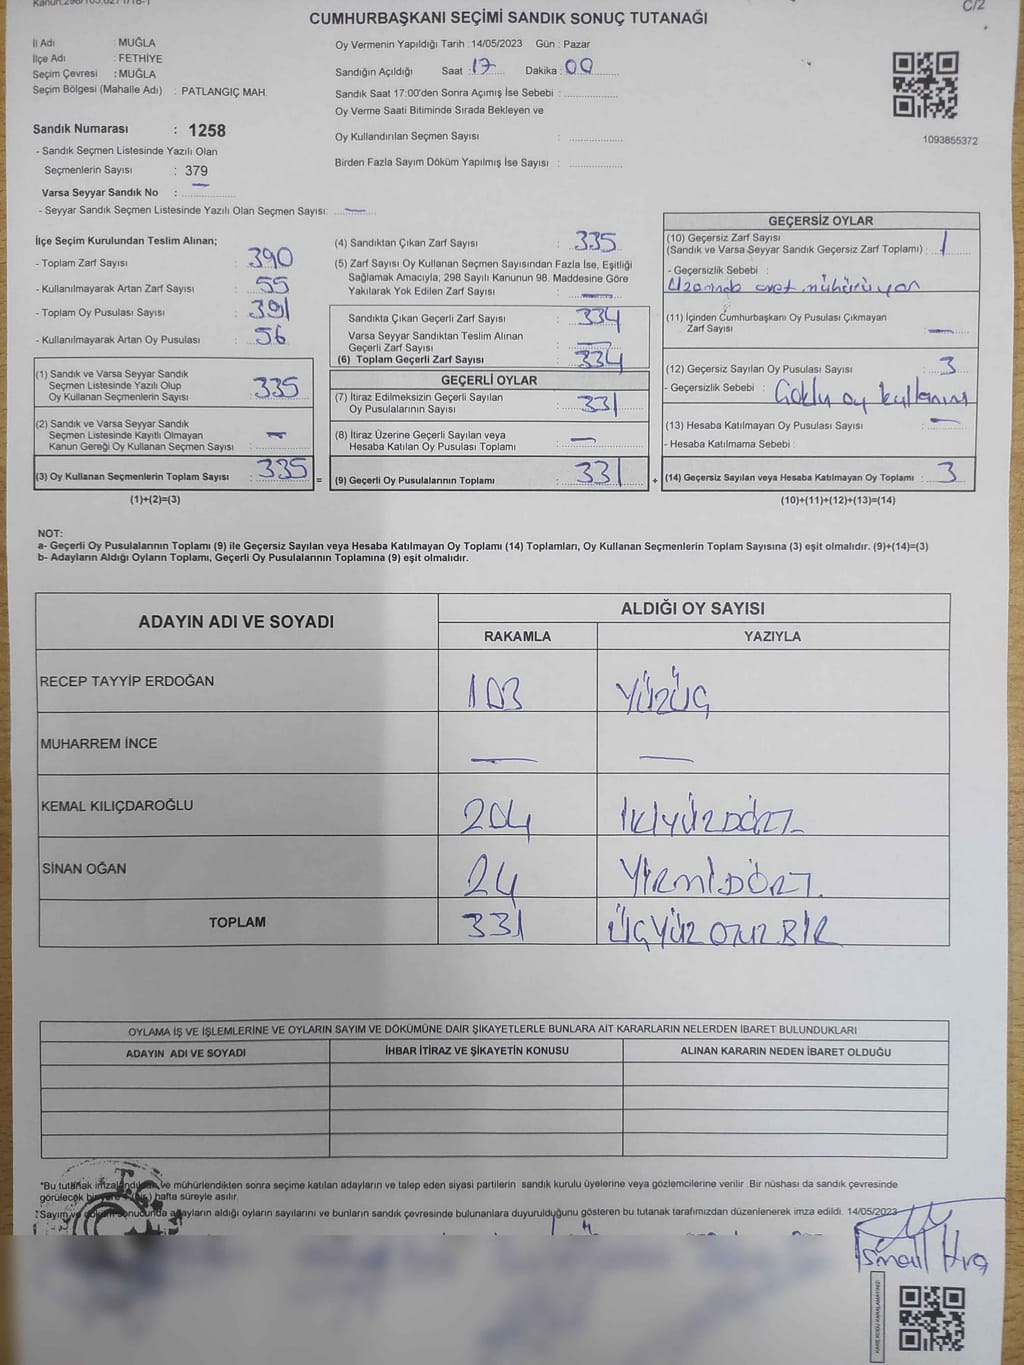 Kanun:298/103,627
C/2
CUMHURBAŞKANI SEÇİMİ SANDIK SONUÇ TUTANAĞI
İl Adı : MUĞLA
İlçe Adı : FETHİYE
Seçim Çevresi : MUĞLA
Seçim Bölgesi (Mahalle Adı) : PATLANGIÇ MAH.
Oy Vermenin Yapıldığı Tarih : 14/05/2023 Gün : Pazar
Sandığın Açıldığı Saat : 17 Dakika : 00
Sandık Saat 17:00'den Sonra Açımış İse Sebebi :
Oy Verme Saati Bitiminde Sırada Bekleyen ve
Oy Kullandırılan Seçmen Sayısı :
Birden Fazla Sayım Döküm Yapılmış İse Sayısı :
1093855372
Sandık Numarası : 1258
- Sandık Seçmen Listesinde Yazılı Olan
Seçmenlerin Sayısı : 379
Varsa Seyyar Sandık No : —
- Seyyar Sandık Seçmen Listesinde Yazılı Olan Seçmen Sayısı: —
İlçe Seçim Kurulundan Teslim Alınan;
- Toplam Zarf Sayısı : 390
- Kullanılmayarak Artan Zarf Sayısı : 55
- Toplam Oy Pusulası Sayısı : 391
- Kullanılmayarak Artan Oy Pusulası : 56
(1) Sandık ve Varsa Seyyar Sandık
Seçmen Listesinde Yazılı Olup
Oy Kullanan Seçmenlerin Sayısı : 335
(2) Sandık ve Varsa Seyyar Sandık
Seçmen Listesinde Kayıtlı Olmayan
Kanun Gereği Oy Kullanan Seçmen Sayısı : —
(3) Oy Kullanan Seçmenlerin Toplam Sayısı : 335
=
(1)+(2)=(3)
(4) Sandıktan Çıkan Zarf Sayısı : 335
(5) Zarf Sayısı Oy Kullanan Seçmen Sayısından Fazla İse, Eşitliği
Sağlamak Amacıyla, 298 Sayılı Kanunun 98. Maddesine Göre
Yakılarak Yok Edilen Zarf Sayısı : —
Sandıkta Çıkan Geçerli Zarf Sayısı : 334
Varsa Seyyar Sandıktan Teslim Alınan
Geçerli Zarf Sayısı : —
(6) Toplam Geçerli Zarf Sayısı : 334
GEÇERLİ OYLAR
(7) İtiraz Edilmeksizin Geçerli Sayılan
Oy Pusulalarının Sayısı : 331
(8) İtiraz Üzerine Geçerli Sayılan veya
Hesaba Katılan Oy Pusulası Toplamı : —
(9) Geçerli Oy Pusulalarının Toplamı : 331
+
GEÇERSİZ OYLAR
(10) Geçersiz Zarf Sayısı
(Sandık ve Varsa Seyyar Sandık Geçersiz Zarf Toplamı) : 1
- Geçersizlik Sebebi :
Üzerinde evet mühürü var
(11) İçinden Cumhurbaşkanı Oy Pusulası Çıkmayan
Zarf Sayısı : —
(12) Geçersiz Sayılan Oy Pusulası Sayısı : 3
- Geçersizlik Sebebi : Çoklu oy kullanımı
(13) Hesaba Katılmayan Oy Pusulası Sayısı : —
- Hesaba Katılmama Sebebi :
(14) Geçersiz Sayılan veya Hesaba Katılmayan Oy Toplamı : 3
(10)+(11)+(12)+(13)=(14)
NOT:
a- Geçerli Oy Pusulalarının Toplamı (9) ile Geçersiz Sayılan veya Hesaba Katılmayan Oy Toplamı (14) Toplamları, Oy Kullanan Seçmenlerin Toplam Sayısına (3) eşit olmalıdır. (9)+(14)=(3)
b- Adayların Aldığı Oyların Toplamı, Geçerli Oy Pusulalarının Toplamına (9) eşit olmalıdır.
ADAYIN ADI VE SOYADI
ALDIĞI OY SAYISI
RAKAMLA YAZIYLA
RECEP TAYYİP ERDOĞAN 103 YÜZÜÇ
MUHARREM İNCE — —
KEMAL KILIÇDAROĞLU 204 İKİYÜZDÖRT
SİNAN OĞAN 24 YİRMİDÖRT.
TOPLAM 331 ÜÇYÜZOTUZBİR
OYLAMA İŞ VE İŞLEMLERİNE VE OYLARIN SAYIM VE DÖKÜMÜNE DAİR ŞİKAYETLERLE BUNLARA AİT KARARLARIN NELERDEN İBARET BULUNDUKLARI
ADAYIN ADI VE SOYADI İHBAR İTİRAZ VE ŞİKAYETİN KONUSU ALINAN KARARIN NEDEN İBARET OLDUĞU
*Bu tutanak imzalandıktan ve mühürlendikten sonra seçime katılan adayların ve talep eden siyasi partilerin sandık kurulu üyelerine veya gözlemcilerine verilir .Bir nüshası da sandık çevresinde
görülecek bir yere hafta süreyle asılır.
*Sayım ve döküm sonucunda adayların aldığı oyların sayılarını ve bunların sandık çevresinde bulunanlara duyurulduğunu gösteren bu tutanak tarafımızdan düzenlenerek imza edildi. 14/05/2023
İsmail